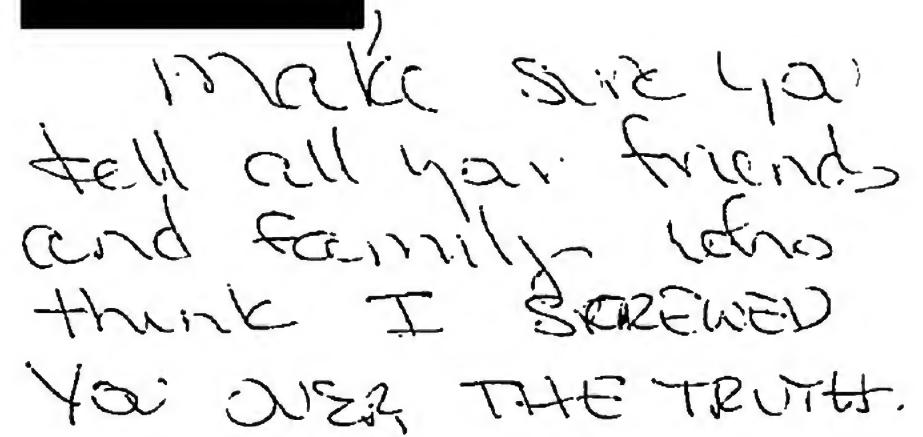 Make sure you
tell all your friends
and family who
think I SCREWED
YOU OVER, THE TRUTH.